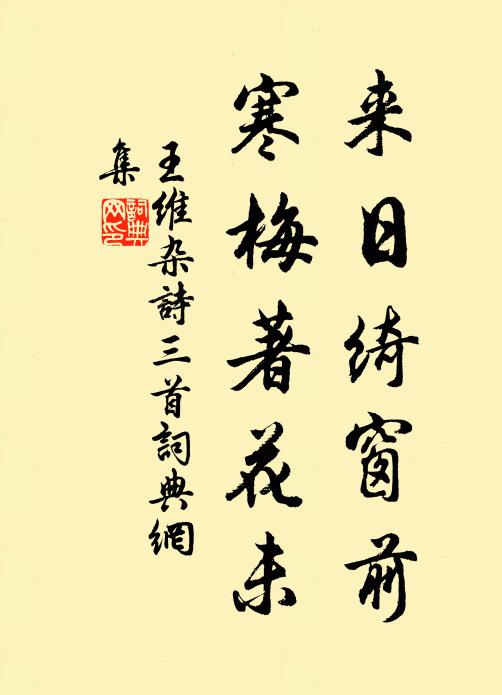 来日绮窗前
寒梅著花未
王维杂詩三首詞典網
集
詞典
网印